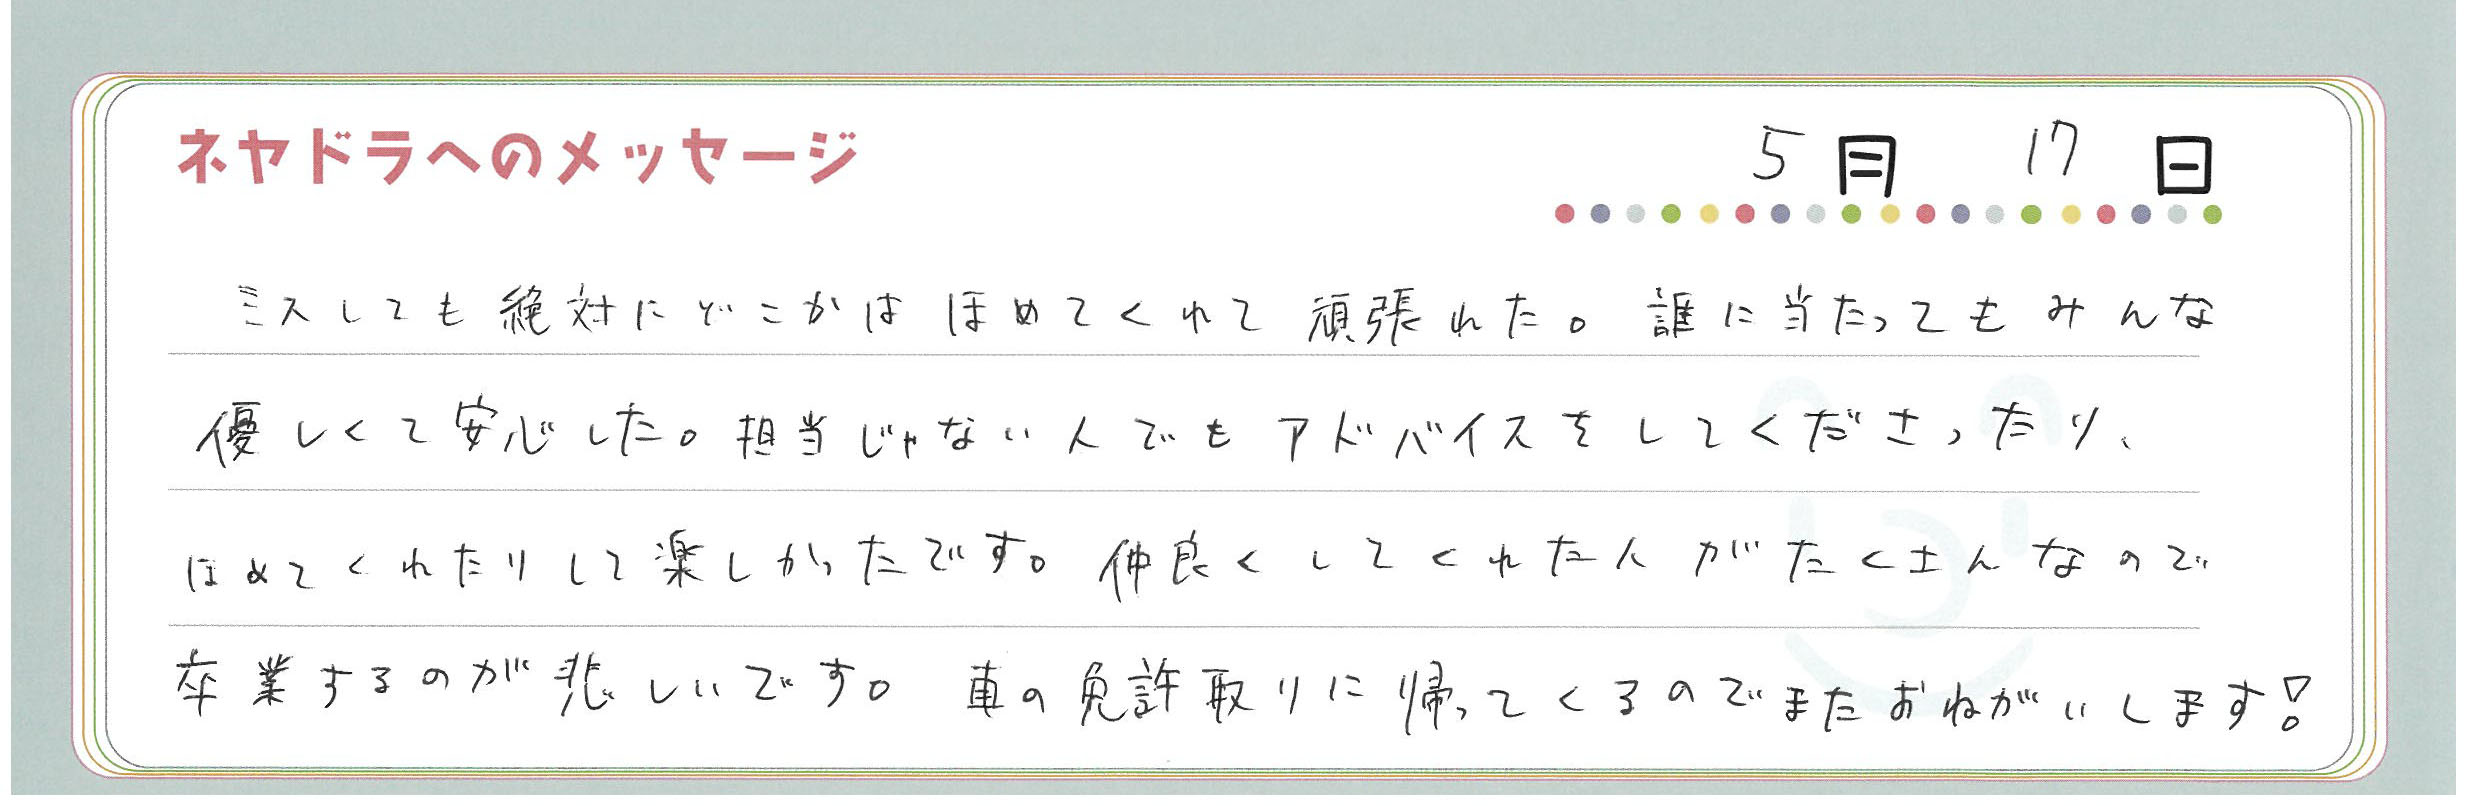 ネヤドラへのメッセージ
5月 17日
ミスしても絶対にどこかはほめてくれて頑張れた。誰に当たってもみんな
優しくて安心した。担当じゃない人でもアドバイスをしてくださったり、
ほめてくれたりして楽しかったです。仲良くしてくれた人がたくさんなので
卒業するのが悲しいです。車の免許取りに帰ってくるのでまたおねがいします!